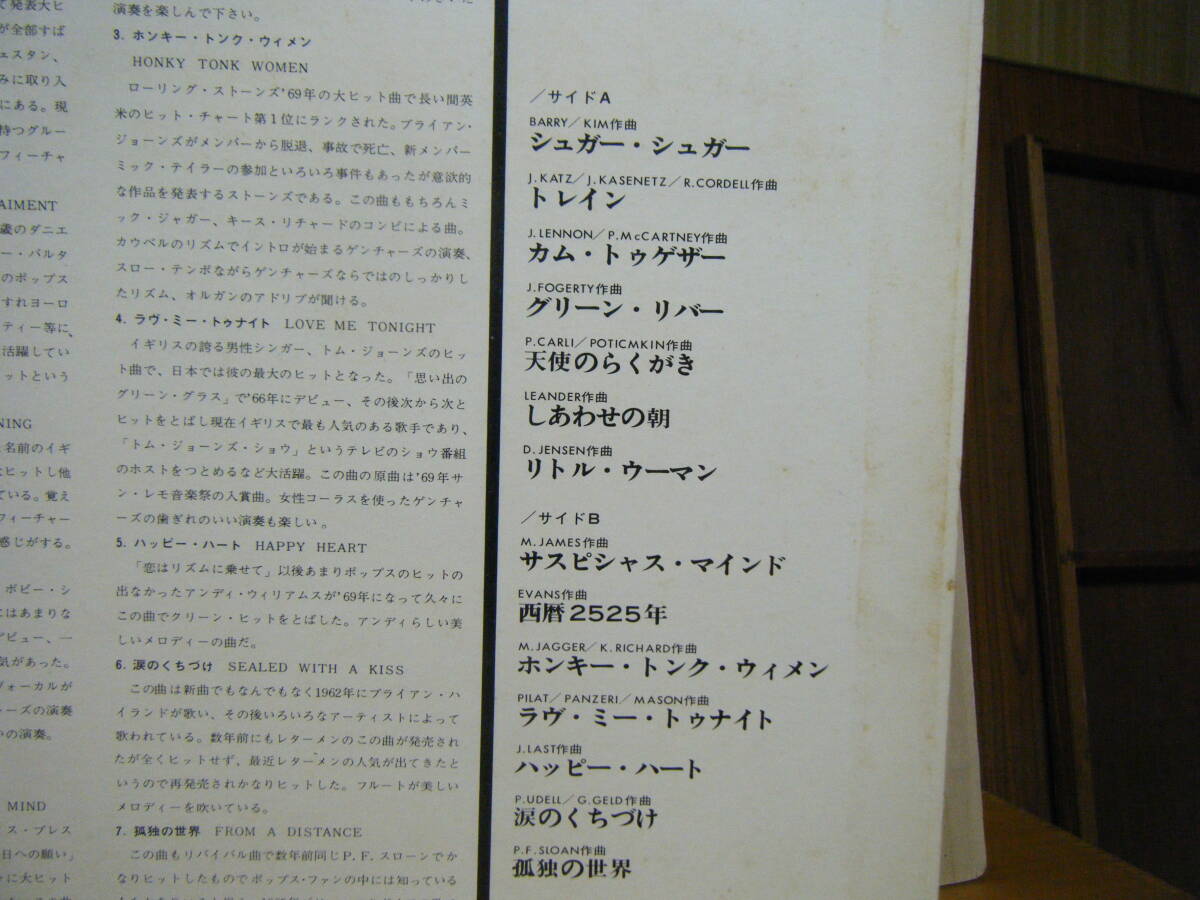 て発表大ヒ
が全部すば
ェスタン、
みに取り入
にある。現
持つグルー
フィーチャ
AIMENT
歳のダニエ
ー・バルタ
のポップス
すれヨーロ
ティー等に、
活躍してい
ットという
NING
名前のイギ
ヒットし他
ている。覚え
フィーチャー
感じがする。
ボビー・シ
にはあまりな
デビュー、一
気があった。
ヴォーカルが
ャーズの演奏
いの演奏。
MIND
ィス・プレス
日への願い」
に大ヒット
演奏を楽しんで下さい。
3. ホンキー・トンク・ウィメン
HONKY TONK WOMEN
ローリング・ストーンズ'69年の大ヒット曲で長い間英
米のヒット・チャート第1位にランクされた。ブライアン・
ジョーンズがメンバーから脱退、事故で死亡、新メンバー
ミック・テイラーの参加といろいろ事件もあったが意欲的
な作品を発表するストーンズである。この曲ももちろんミ
ック・ジャガー、キース・リチャードのコンビによる曲。
カウベルのリズムでイントロが始まるゲンチャーズの演奏、
スロー・テンポながらゲンチャーズならではのしっかりし
たリズム、オルガンのアドリブが聞ける。
4. ラヴ・ミー・トゥナイト LOVE ME TONIGHT
イギリスの誇る男性シンガー、トム・ジョーンズのヒッ
ト曲で、日本では彼の最大のヒットとなった。「思い出の
グリーン・グラス」で'66年にデビュー、その後次から次と
ヒットをとばし現在イギリスで最も人気のある歌手であり、
「トム・ジョーンズ・ショウ」というテレビのショウ番組
のホストをつとめるなど大活躍。この曲の原曲は'69年サ
ン・レモ音楽祭の入賞曲。女性コーラスを使ったゲンチャ
ーズの歯ぎれのいい演奏も楽しい。
5. ハッピー・ハート HAPPY HEART
「恋はリズムに乗せて」以後あまりポップスのヒットの
出なかったアンディ・ウィリアムスが'69年になって久々に
この曲でクリーン・ヒットをとばした。アンディらしい美
しいメロディーの曲だ。
6. 涙のくちづけ SEALED WITH A KISS
この曲は新曲でもなんでもなく1962年にブライアン・ハ
イランドが歌い、その後いろいろなアーティストによって
歌われている。数年前にもレターメンのこの曲が発売され
たが全くヒットせず、最近レターメンの人気が出てきたと
いうので再発売されかなりヒットした。フルートが美しい
メロディーを吹いている。
7. 孤独の世界 FROM A DISTANCE
この曲もリバイバル曲で数年前同じP.F.スローンでか
なりヒットしたものでポップス・ファンの中には知っている
/サイドA
BARRY/KIM作曲
シュガー・シュガー
J.KATZ/J.KASENETZ/R.CORDELL作曲
トレイン
J.LENNON/P.McCARTNEY作曲
カム・トゥゲザー
J.FOGERTY作曲
グリーン・リバー
P.CARLI/POTICMKIN作曲
天使のらくがき
LEANDER作曲
しあわせの朝
D.JENSEN作曲
リトル・ウーマン
/サイドB
M.JAMES作曲
サスピシャス・マインド
EVANS作曲
西暦2525年
M.JAGGER/K.RICHARD作曲
ホンキー・トンク・ウィメン
PILAT/PANZERI/MASON作曲
ラヴ・ミー・トゥナイト
J.LAST作曲
ハッピー・ハート
P.UDELL/G.GELD作曲
涙のくちづけ
P.F.SLOAN作曲
孤独の世界